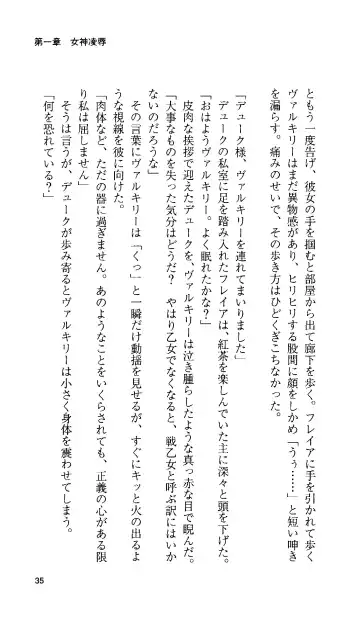 第一章　女神凌辱
ともう一度告げ、彼女の手を掴むと部屋から出て廊下を歩く。フレイアに手を引かれて歩く
ヴァルキリーはまだ異物感があり、ヒリヒリする股間に顔をしかめ「うぅ……」と短い呻き
を漏らす。痛みのせいで、その歩き方はひどくぎこちなかった。
「デューク様、ヴァルキリーを連れてまいりました」
デュークの私室に足を踏み入れたフレイアは、紅茶を楽しんでいた主に深々と頭を下げた。
「おはようヴァルキリー。よく眠れたかな？」
皮肉な挨拶で迎えたデュークを、ヴァルキリーは泣き腫らしたような真っ赤な目で睨んだ。
「大事なものを失った気分はどうだ？　やはり乙女でなくなると、戦乙女と呼ぶ訳にはいか
ないのだろうな」
その言葉にヴァルキリーは「くっ」と一瞬だけ動揺を見せるが、すぐにキッと火の出るよ
うな視線を彼に向けた。
「肉体など、ただの器に過ぎません。あのようなことをいくらされても、正義の心がある限
り私は屈しません」
そうは言うが、デュークが歩み寄るとヴァルキリーは小さく身体を震わせてしまう。
「何を恐れている？」
35